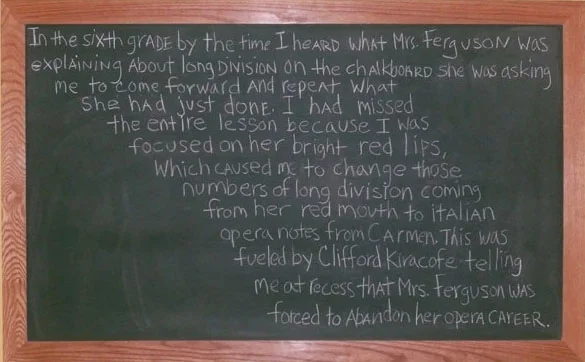 In the sixth grade by the time I heard what Mrs. Ferguson was
explaining about long division on the chalkboard she was asking
me to come forward and repeat what
she had just done. I had missed
the entire lesson because I was
focused on her bright red lips,
which caused me to change those
numbers of long division coming
from her red mouth to italian
opera notes from Carmen. This was
fueled by Clifford Kiracofe telling
me at recess that Mrs. Ferguson was
forced to abandon her opera career.